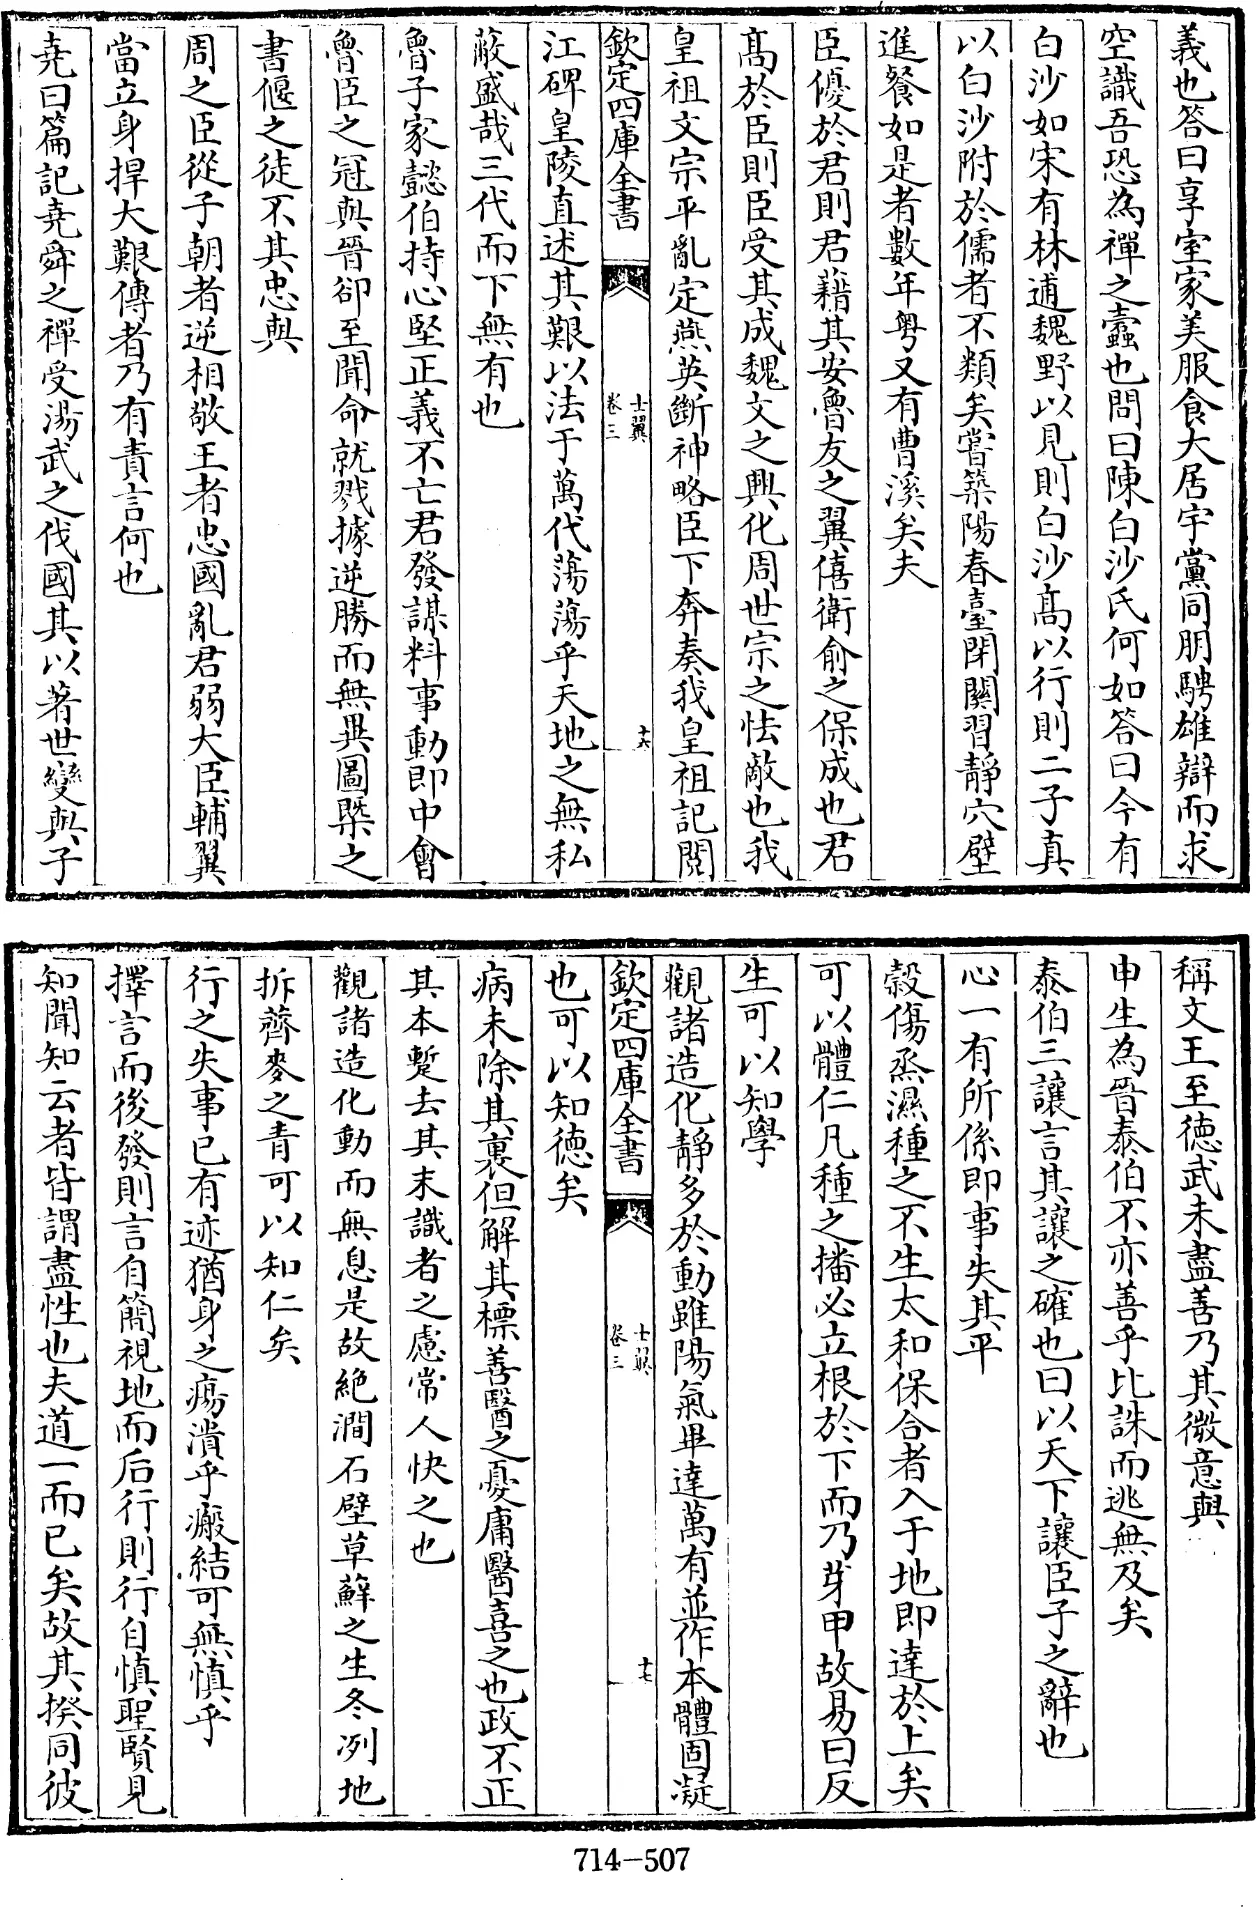 義也答曰享室家美服食大居宇黨同朋騁雄辯而求
空識吾恐為禪之蠹也問曰陳白沙氏何如答曰今有
白沙如宋有林逋魏野以見則白沙髙以行則二子真
以白沙附於儒者不類矣嘗築陽春臺閉關習靜穴壁
進餐如是者數年粤又有曹溪矣夫
臣優於君則君藉其安魯友之翼僖衛俞之保成也君
髙於臣則臣受其成魏文之興化周世宗之怯敵也我
皇祖文宗平亂定燕英斷神略臣下奔奏我皇祖記閱
欽定四庫全書
士翼
卷三
十六
江碑皇陵直述其艱以法于萬代蕩蕩乎天地之無私
蔽盛哉三代而下無有也
魯子家懿伯持心堅正義不亡君發謀料事動即中會
魯臣之冠與晉卻至聞命就戮據逆勝而無異圖槩之
書偃之徒不其忠與
周之臣從子朝者逆相敬王者忠國亂君弱大臣輔翼
當立身捍大艱傳者乃有責言何也
堯曰篇記堯舜之禪受湯武之伐國其以著世變與子
稱文王至徳武未盡善乃其微意與
申生為晉泰伯不亦善乎比誅而逃無及矣
泰伯三讓言其讓之確也曰以天下讓臣子之辭也
心一有所係即事失其平
穀傷烝濕種之不生太和保合者入于地即達於上矣
可以體仁凡種之播必立根於下而乃芽甲故易曰反
生可以知學
觀諸造化靜多於動雖陽氣畢達萬有並作本體固凝
欽定四庫全書
士翼
卷三
十七
也可以知德矣
病未除其裏但解其標善醫之憂庸醫喜之也政不正
其本蹔去其末識者之慮常人快之也
觀諸造化動而無息是故絶澗石壁草蘚之生冬冽地
拆薺麥之青可以知仁矣
行之失事已有迹猶身之瘍潰乎瘢結可無慎乎
擇言而後發則言自簡視地而后行則行自慎聖賢見
知聞知云者皆謂盡性也夫道一而已矣故其揆同彼
714-507